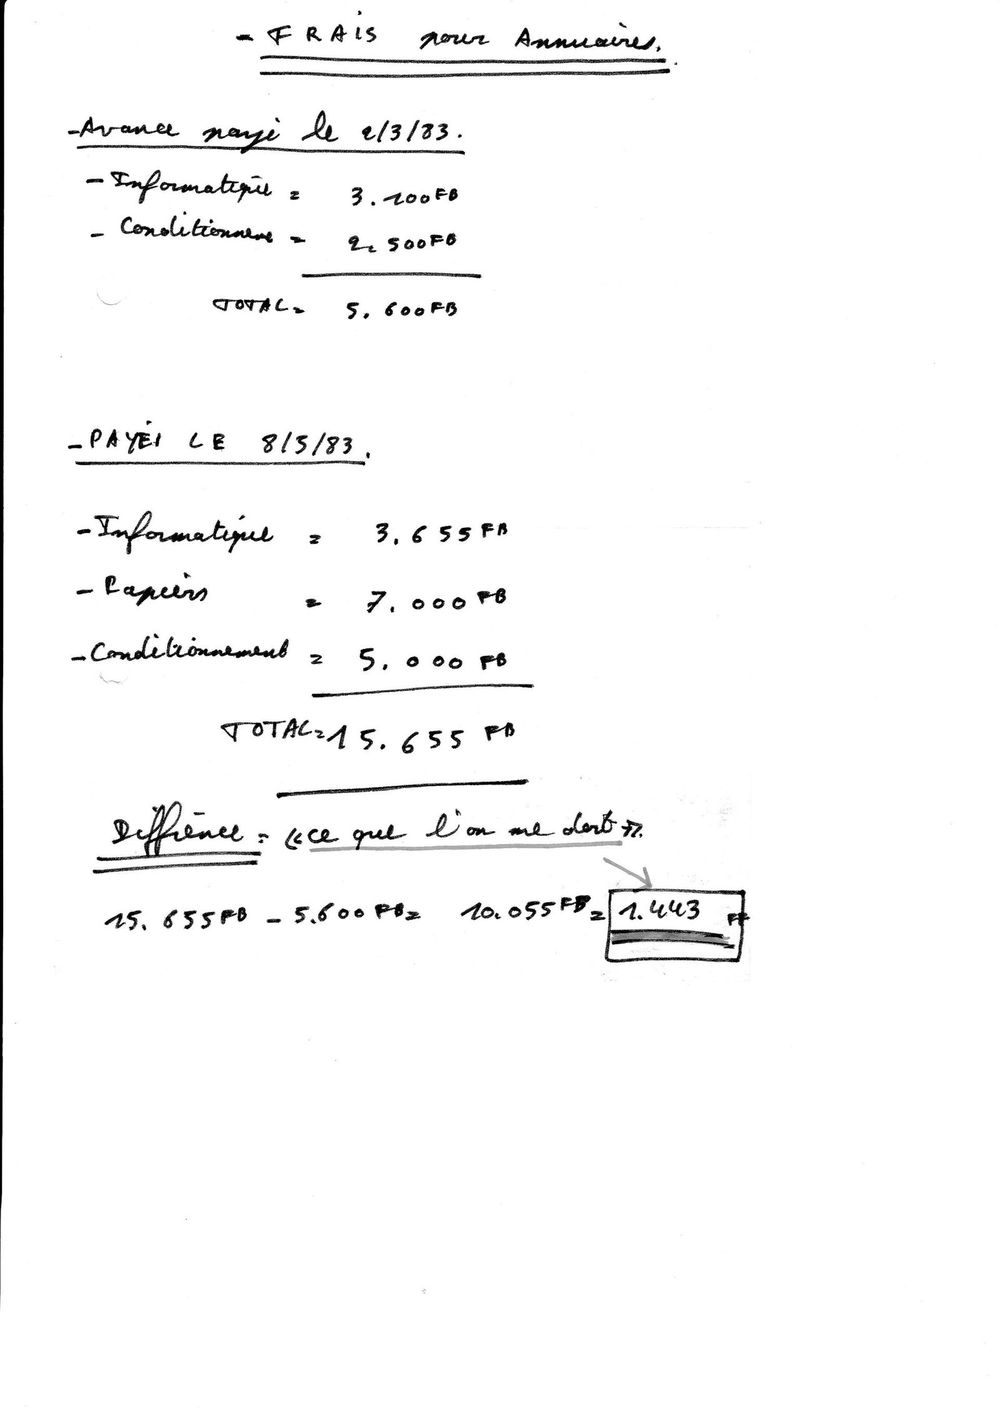 - FRAIS pour Annuaires.
- Avance payé le 2/3/83.
- Informatique = 3.100 FB
- Conditionneme = 2.500 FB
TOTAL = 5.600 FB
- PAYÉ LE 8/5/83.
- Informatique = 3.655 FB
- Papiers = 7.000 FB
- Conditionnement = 5.000 FB
TOTAL = 15.655 FB
Différence = « ce que l'on me doit ».
15.655 FB - 5.600 FB = 10.055 FB = 1.443 FF